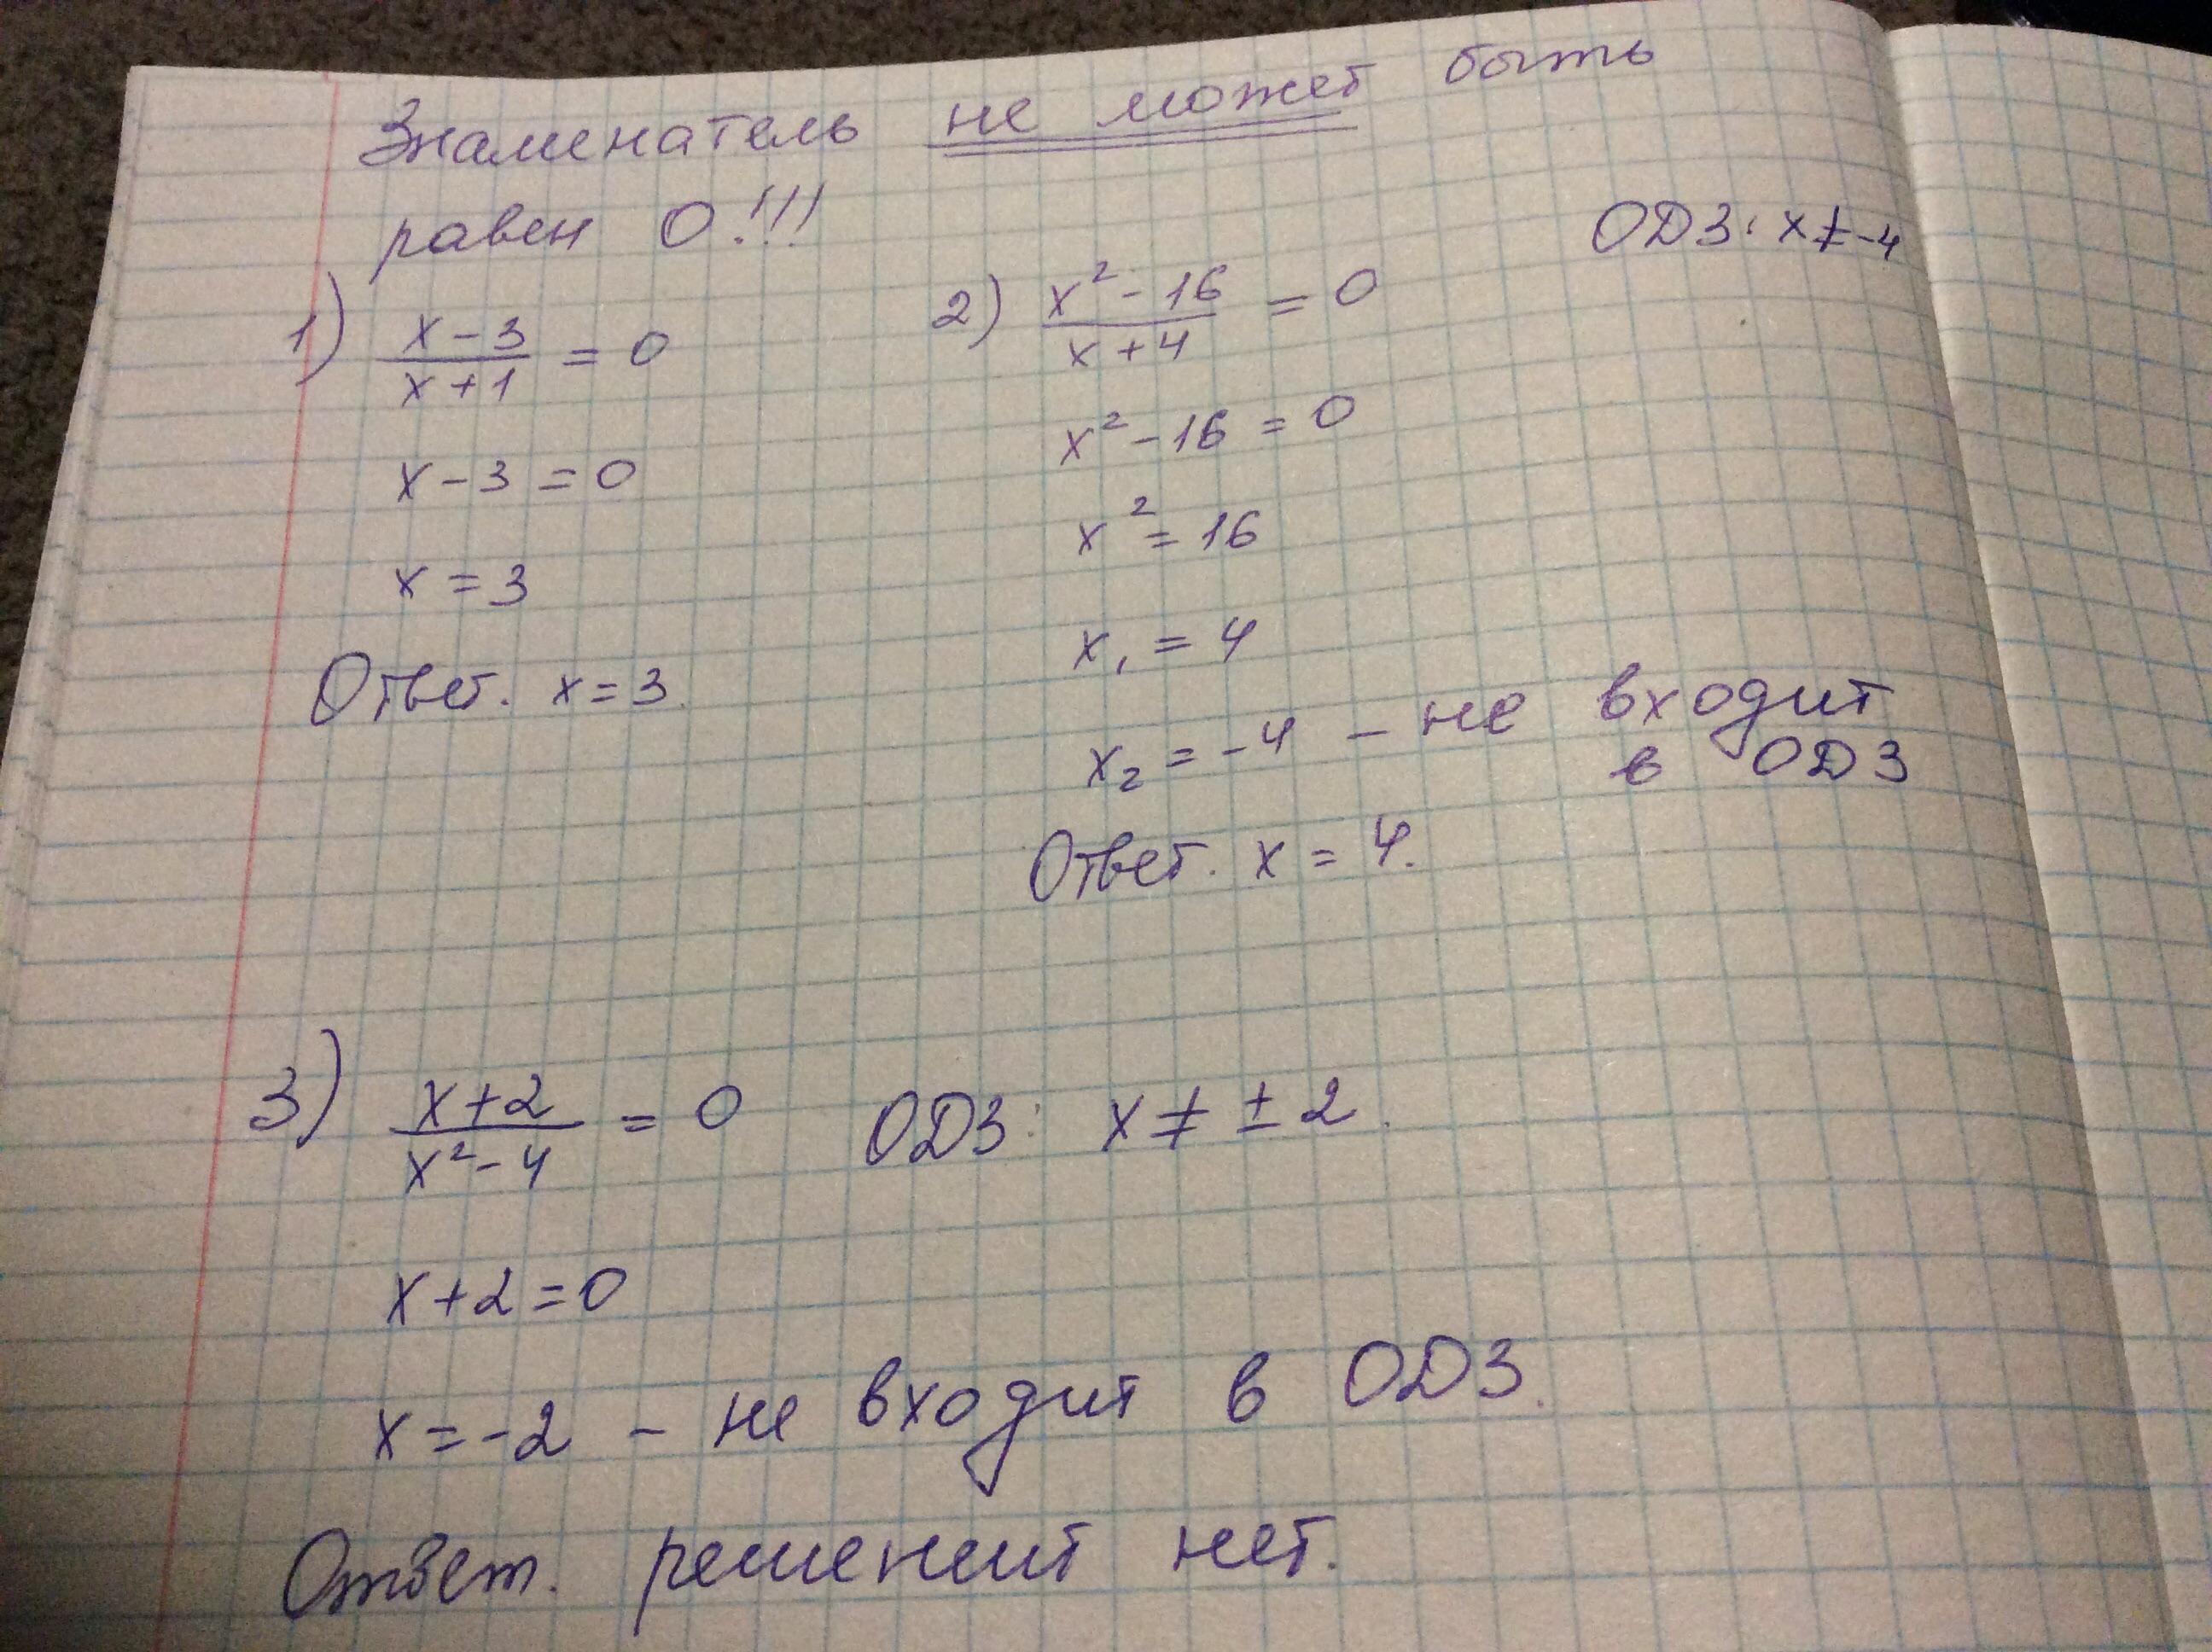 Знаменатель не может быть
равен 0!!!
1) (x-3)/(x+1) = 0
x-3=0
x=3
Ответ. x=3.
ОДЗ: x≠-4
2) (x²-16)/(x+4) = 0
x²-16=0
x²=16
x₁=4
x₂=-4 - не входит
в ОДЗ
Ответ. x=4.
3) (x+2)/(x²-4) = 0 ОДЗ: x≠±2.
x+2=0
x=-2 - не входит в ОДЗ.
Ответ. решений нет.